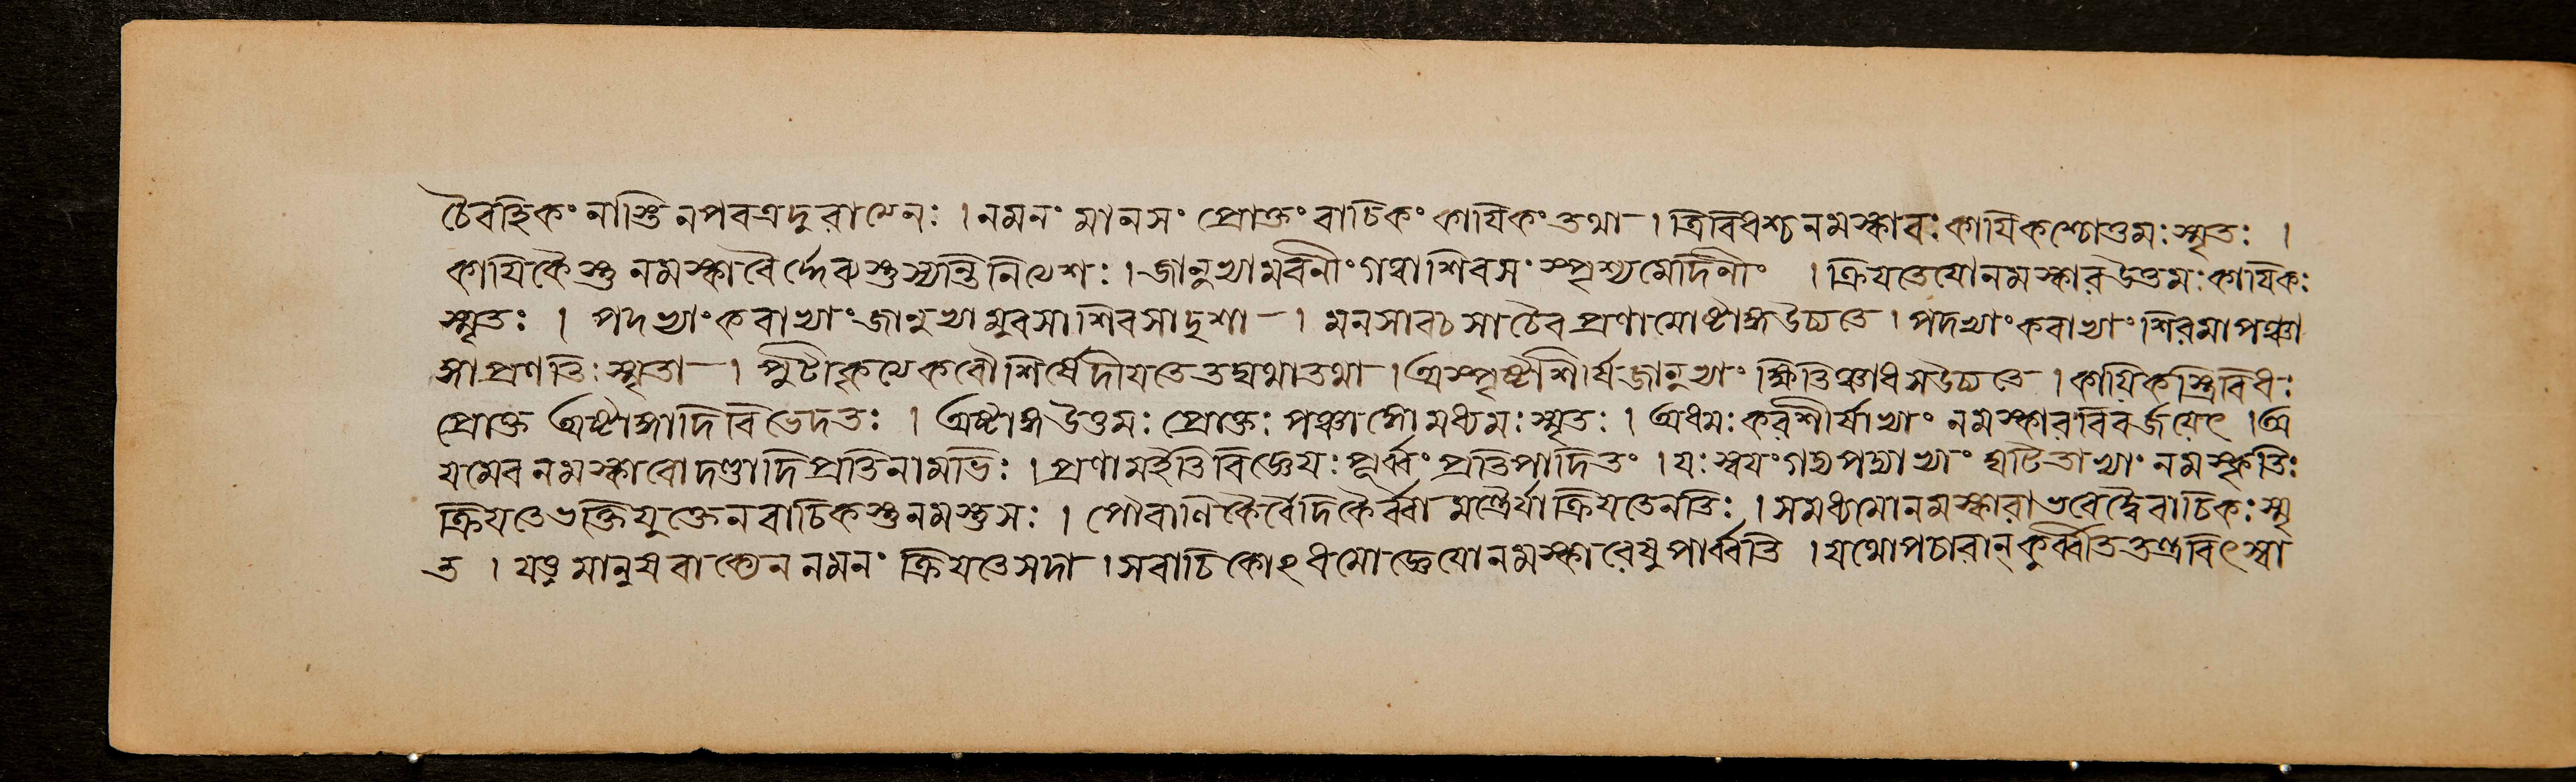 চৈবহিকং নাস্তি ন পবত্র দুরাত্মনঃ । নমনং মানসং প্রোক্তং বাচিকং কায়িকং তথা — । ত্রিবিধশ্চ নমস্কাবঃ কায়িকশ্চোত্তমঃ স্মৃতঃ ।
কায়িকৈস্তু নমস্কাবৈর্দ্দেবাস্তুস্যন্তি নিত্যশঃ । জানুভ্যামবনীং গত্বা শিবস স্পৃশ্য মেদিনীং । ক্রিয়তে যো নমস্কার উত্তমঃ কায়িকঃ
স্মৃতঃ । পদভ্যাং কবাভ্যাং জানুভ্যামুবসা শিবসা দৃশা — । মনসা বচসা চৈব প্রণামোষ্টাঙ্গ উচ্যতে । পদভ্যাং কবাভ্যাং শিরসা পঞ্চা
ঙ্গা প্রণতিঃ স্মৃতা — । পুটীকৃত্যে কবৌ শির্ষে দীয়তে তদ্যথা তথা । অস্পৃষ্টা শীর্ষ জানুভ্যাং ক্ষিতিঞ্চাধম উচ্যতে । কায়িকস্ত্রিবিধঃ
প্রোক্ত অষ্টাঙ্গাদি বিভেদতঃ । অষ্টাঙ্গ উত্তমঃ প্রোক্তঃ পঞ্চাঙ্গো মধ্যমঃ স্মৃতঃ । অধমঃ করশীর্ষাভ্যাং নমস্কার বিবর্জয়েৎ । অ
য়মেব নমস্কাবো দণ্ডাদি প্রতি নামভিঃ । প্রণাম ইতি বিজ্ঞেয়ঃ পূর্ব্বং প্রতিপাদিতং । যঃ স্বয়ং গদ্যপদ্যাভ্যাং ঘটিতাভ্যাং নমস্কৃতিঃ
ক্রিয়তে ভক্তিযুক্তেন বাচিকস্তু নমস্তু সঃ । পৌবাণিকৈর্বৈদিকৈর্ব্বা মন্ত্রৈর্যা ক্রিয়তে নতিঃ । স মধ্যমো নমস্কারা ভবেদ্বৈ বাচিকঃ স্মৃ
ত । যত্তু মানুষ বাক্যেন নমনং ক্রিয়তে সদা । স বাচিকোঽধমো জ্ঞেয়ো নমস্কাবেষু পার্ব্বতি । যথোপচারান্ কুর্ব্বিত